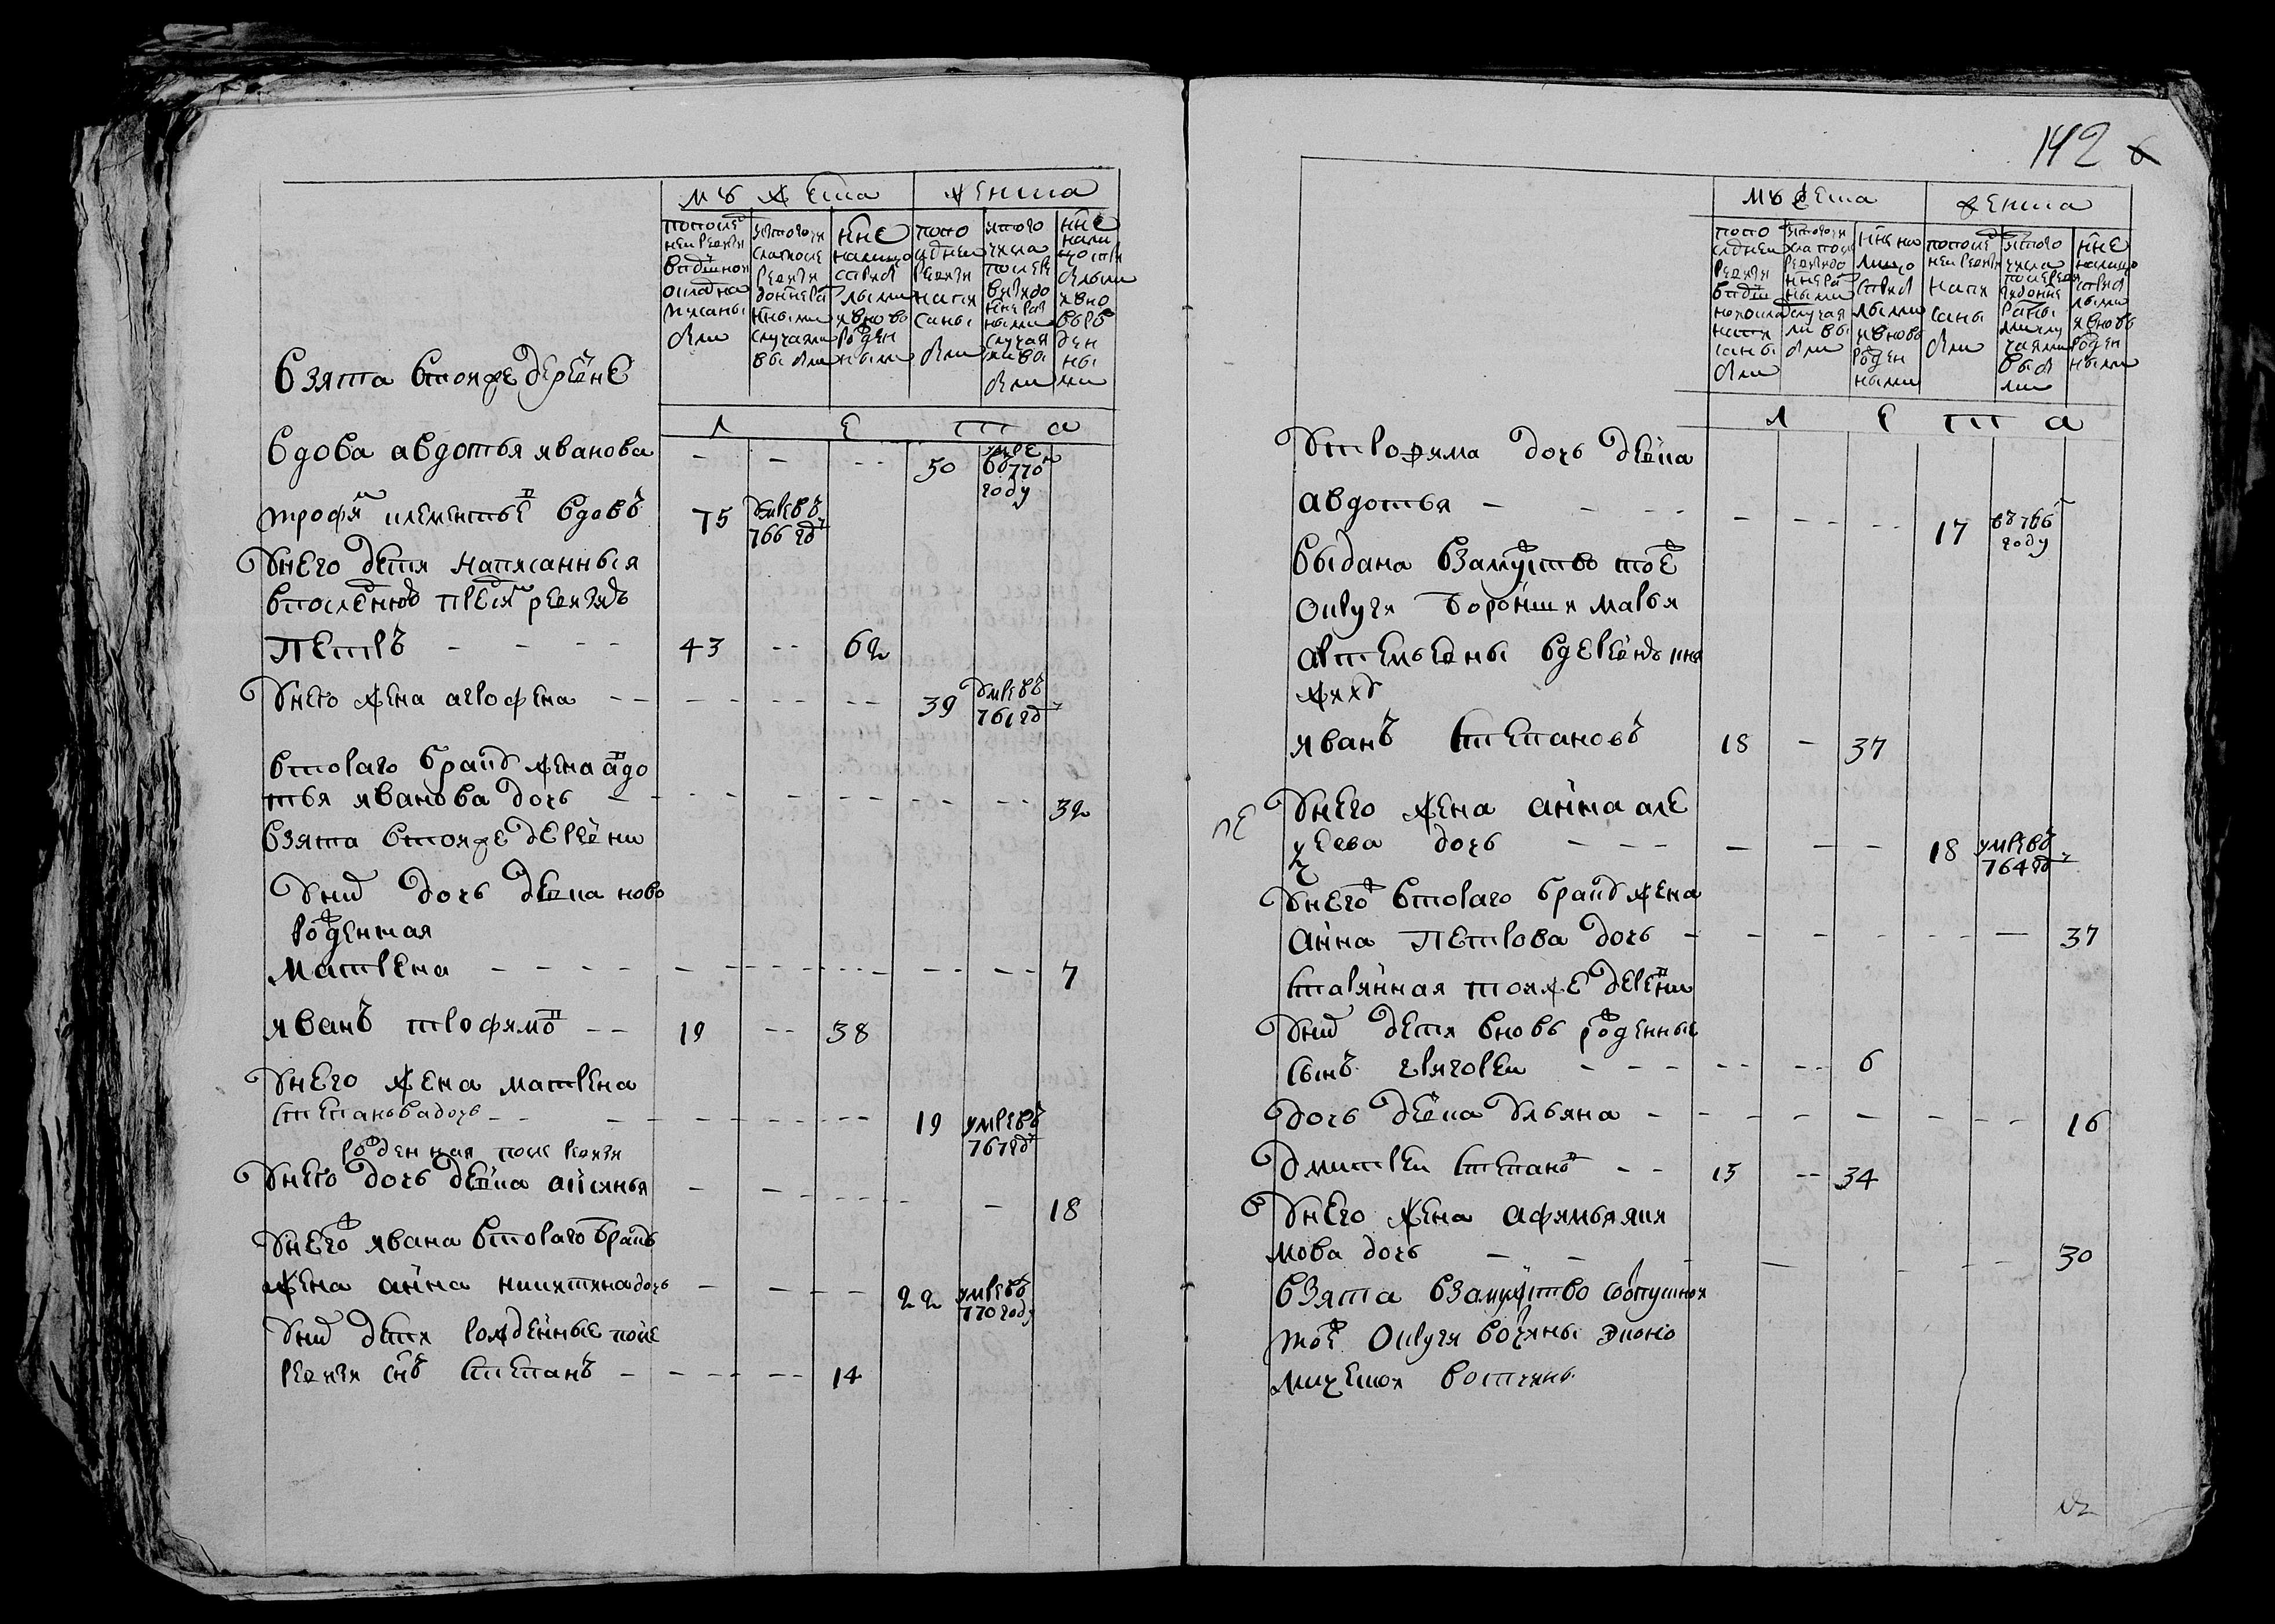 мужеска
женска
по после
ней ревизи
в подушной
оклад на
писаны
были
ис того чи
сла после
ревизи
до ныне ра
зными
случаями
выбыли
ныне
налицо
с прибы
лыми
и вново
рожден
ными
по по
следней
ревизи
напи
саны
были
ис того
числа
после ре
визи до
ныне раз
ными
случая
ми вы
были
ныне
нали
цо с при
былыми
и вно
вь ро
жден
ны
ми
взята в той же деревне
л е т а
вдова авдотья иванова - - - 50 умре в 770м году
трофим клементьев вдов 75 умре в 766 году
у него дети написанныя
в последнюю пред сим ревизию
Петръ - - - 43 -- 62
у него жена агрофена - - - 39 умре в 761 году
втораго браку жена авдо
тья иванова дочь - - - 32
взята в той же деревни
у них дочь девка ново
рожденная
матрена - - - 7
иванъ трофимов - - 19 -- 38
у него жена матрена
степанова дочь - - - 19 умре в 767 году
рожденная после ревизи
у него дочь девка аксинья - - - 18
у него ж ивана втораго браку
жена анна никитина дочь - - - 22 умре в 770 году
у них дети рожденные после
ревизи снъ степанъ - - - 14
142
мужеска
женска
по по
следней
ревизи
в поду
шной оклад
напи
саны
были
ис того чи
сла после
ревизи до
ныне ра
зными
случая
ми вы
были
ныне на
лицо
с прибы
лыми
и вновь
рожден
ными
по после
ней ревизи
напи
саны
были
ис того
числа
после реви
зи до ныне
разны
ми слу
чаями
выбы
ли
ныне
налицо
с прибы
лыми
и вновь
рожден
ными
л е т а
у трофима дочь девка
авдотья - - - 17 в 766 году
выдана в замужство тоей ж
округи
в деревню кня
жиху
иванъ степановъ 18 - 37
у него жена анна але
ѯеева дочь - - - 18 умре в 764 году
у него ж втораго браку жена
анна Петрова дочь - - - 37
старинная той же деревни
у них дети вновь рожденные
сынъ григорей - - - 6
дочь девка ульяна - - - 16
дмитрей степанов - - 15 -- 34
у него жена афимья яки
мова дочь - - - 30
взята в замужство с отпускной
той ж округи вотчины эконо
мической вотчины